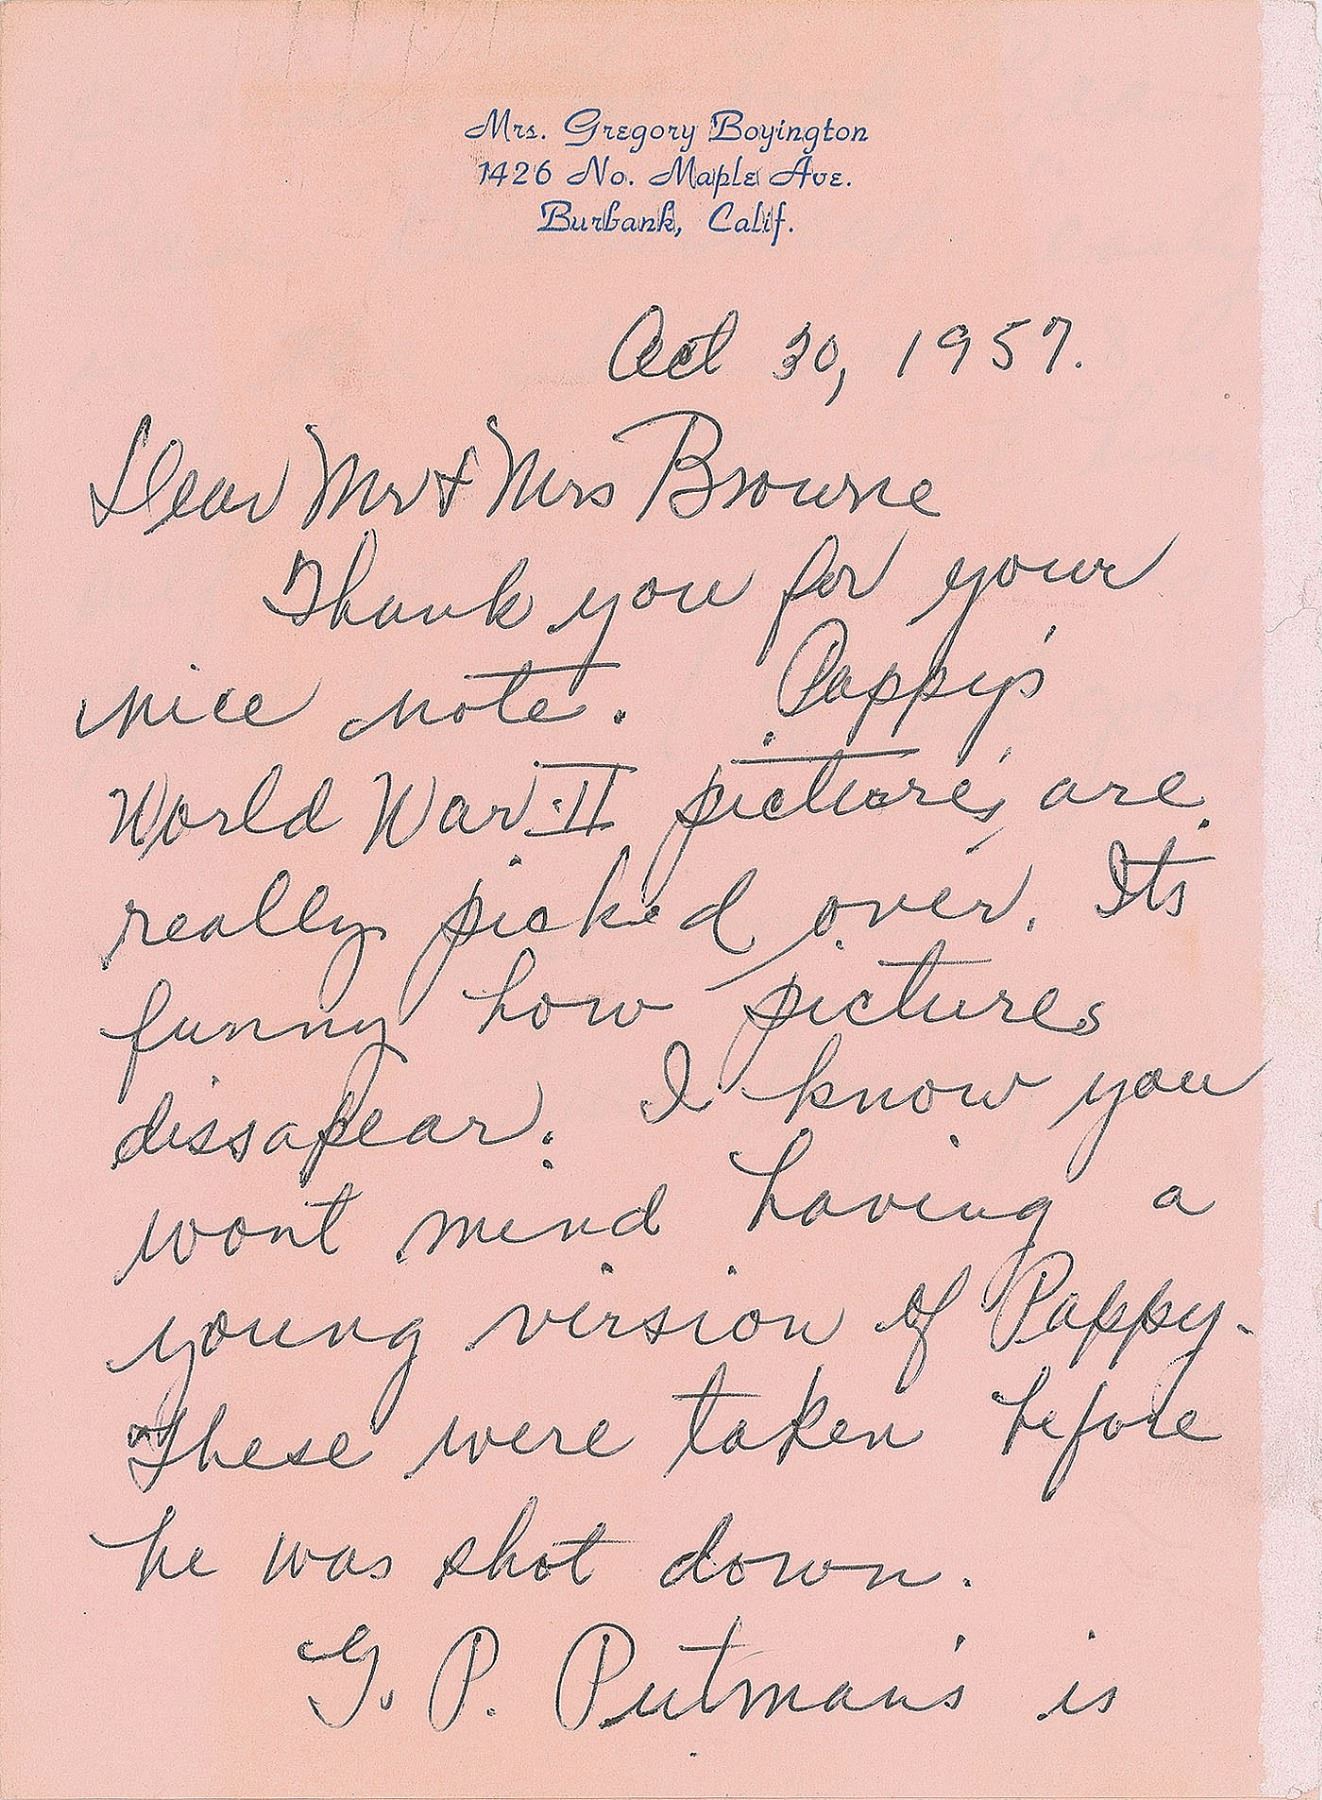 Mrs. Gregory Boyington
1426 No. Maple Ave.
Burbank, Calif.
Oct 30, 1957.
Dear Mr & Mrs Browne
Thank you for your
nice note. Pappy's
World War II picture's are
really picked over. Its
funny how pictures
dissapear. I know you
wont mind having a
young virsion of Pappy.
These were taken before
he was shot down.
G. P. Putman's is